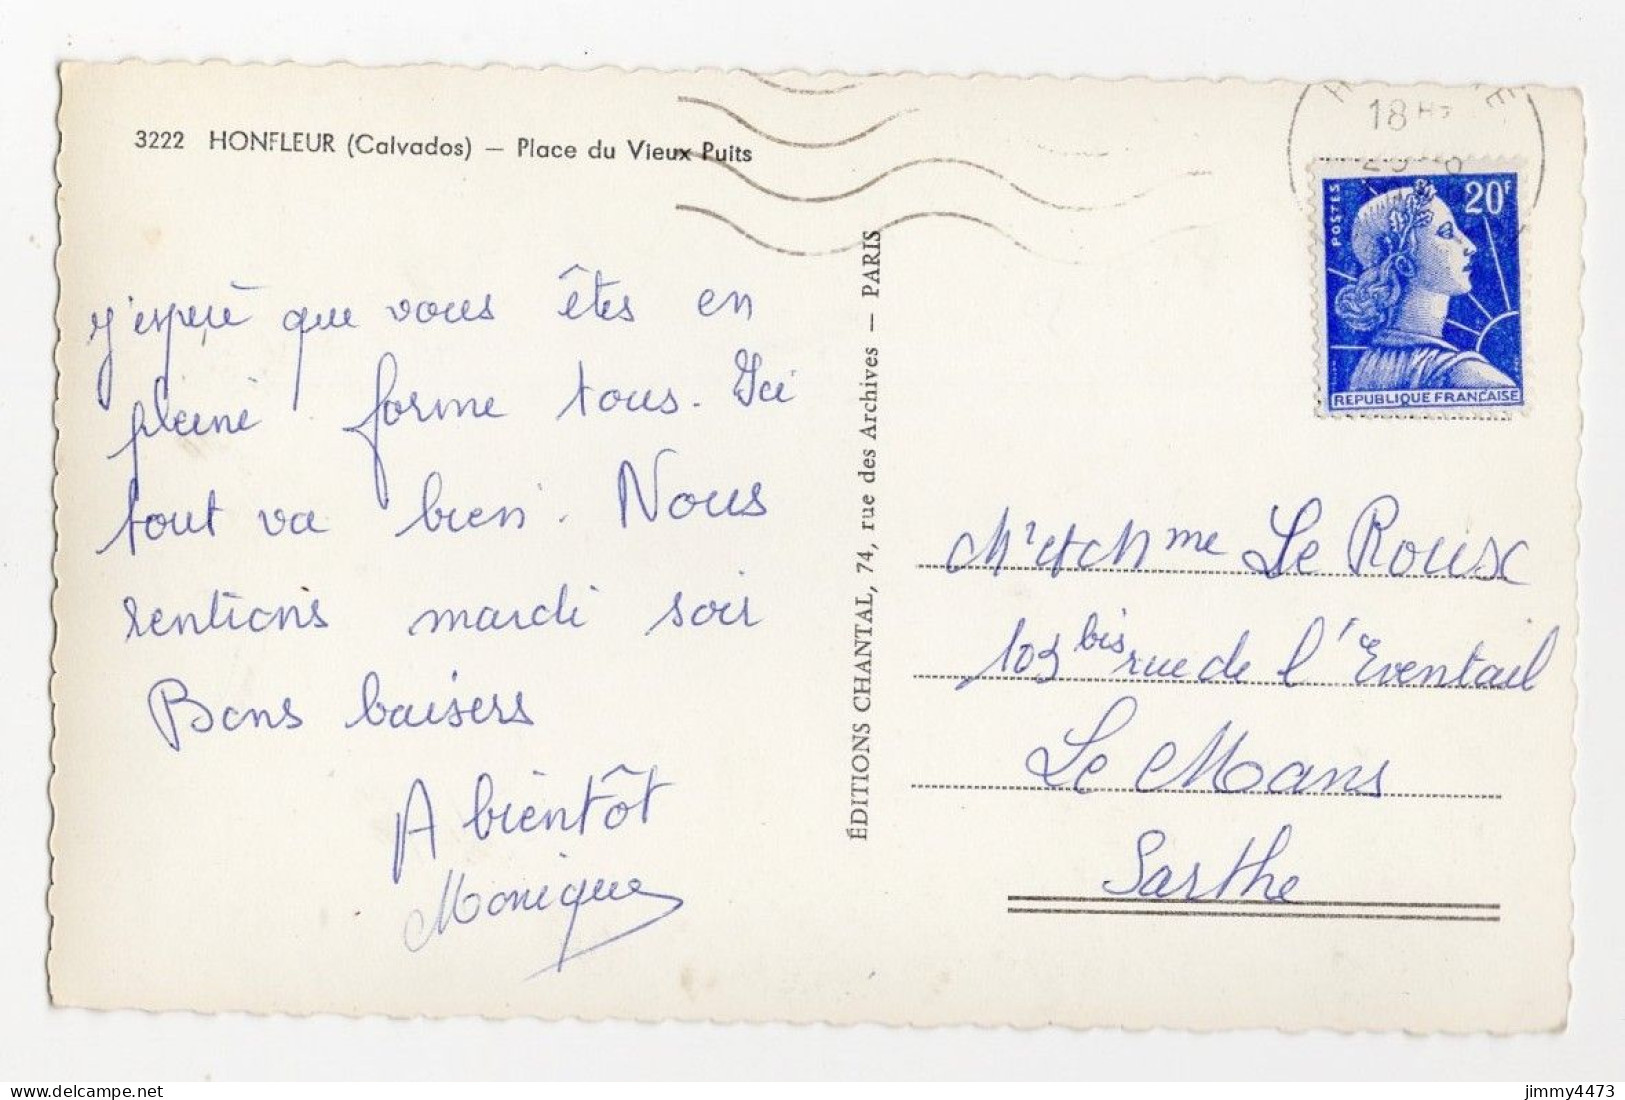 3222 HONFLEUR (Calvados) — Place du Vieux Puits
J'espère que vous êtes en
pleine forme tous. Ici
tout va bien. Nous
rentrons mardi soir
Bons baisers
A bientôt
Monique
ÉDITIONS CHANTAL, 74, rue des Archives — PARIS
18 H
POSTES
20F
REPUBLIQUE FRANCAISE
Mr et Mme Le Roux
103 bis rue de l'Eventail
Le Mans
Sarthe
delcampe.net
jimmy4473